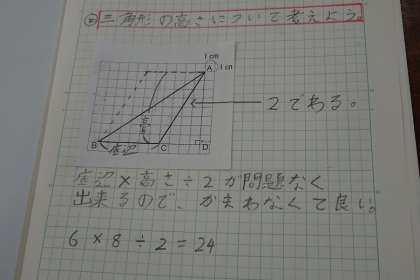 め 三角形の高さについて考えよう。
1 cm
A 1 cm
高さ
2である。
B 底辺 C D
底辺×高さ÷2が問題なく
出来るので、かまわなくて良い。
6×8÷2=24